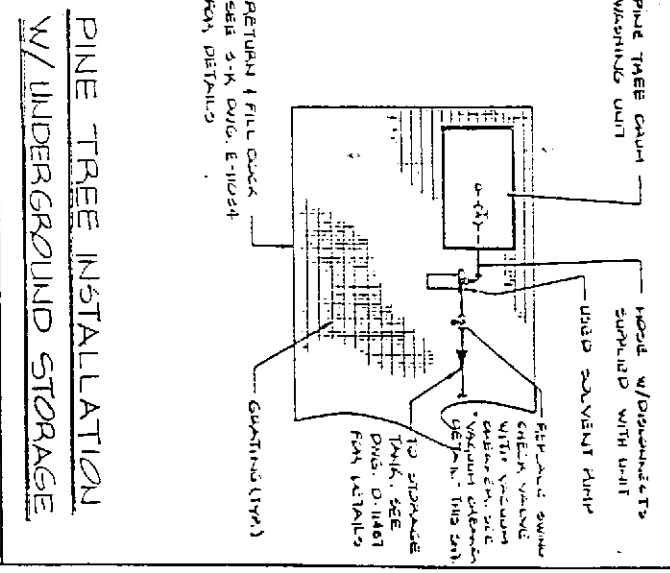 PINE TREE DRUM
WASHING UNIT
HOSE W/DISCONNECTS
SUPPLIED WITH UNIT
USED SOLVENT PUMP
REPLACE SWING
CHECK VALVE
WITH VACUUM
BREAKER. SEE
"VACUUM BREAKER
DETAIL" THIS
TO STORAGE
TANK, SEE
DWG. D-11467
FOR DETAILS
GRATING (TYP.)
RETURN & FILL DOCK
SEE S-K DWG. E-11054
FOR DETAILS
PINE TREE INSTALLATION
W/ UNDERGROUND STORAGE